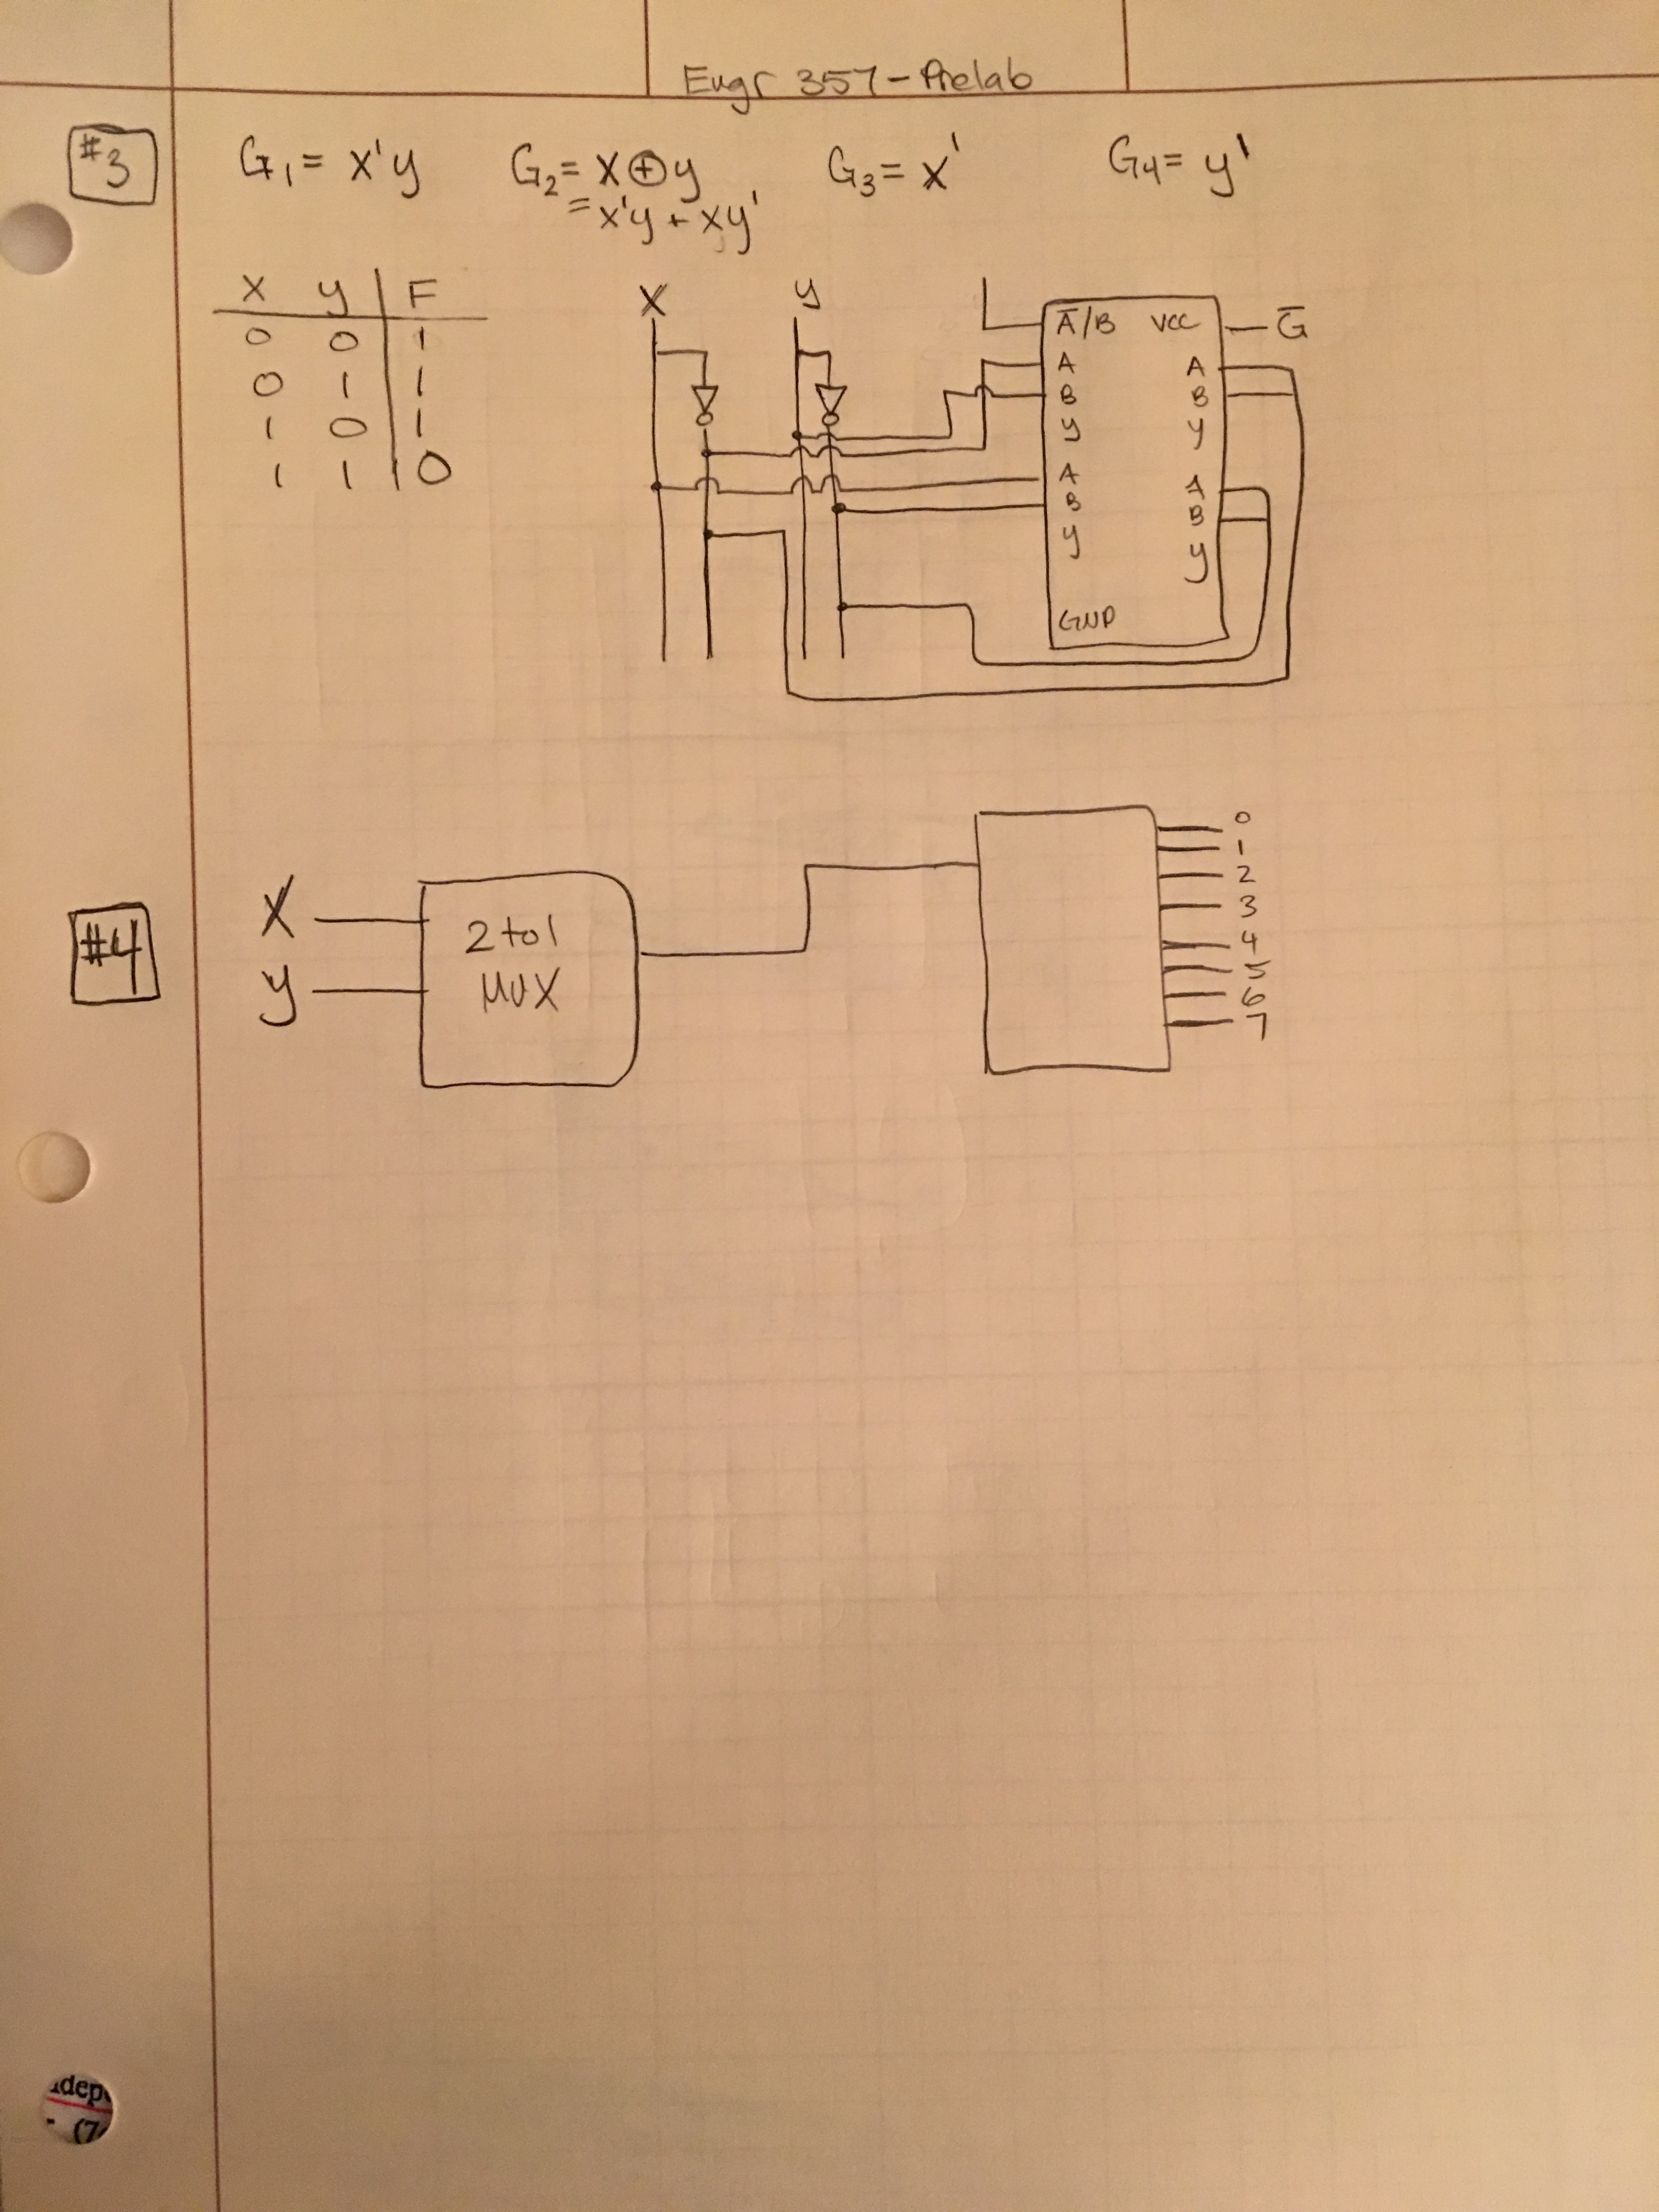 Engr 357 - Prelab
#3
G₁ = x'y G₂ = x⊕y G₃ = x' G₄ = y'
= x'y + xy'
x y F
0 0 1
0 1 1
1 0 1
1 1 0
X y
A̅/B VCC G̅
A A
B B
y y
A A
B B
y y
GND
#4
X
y
2 to 1
MUX
0
1
2
3
4
5
6
7
(7